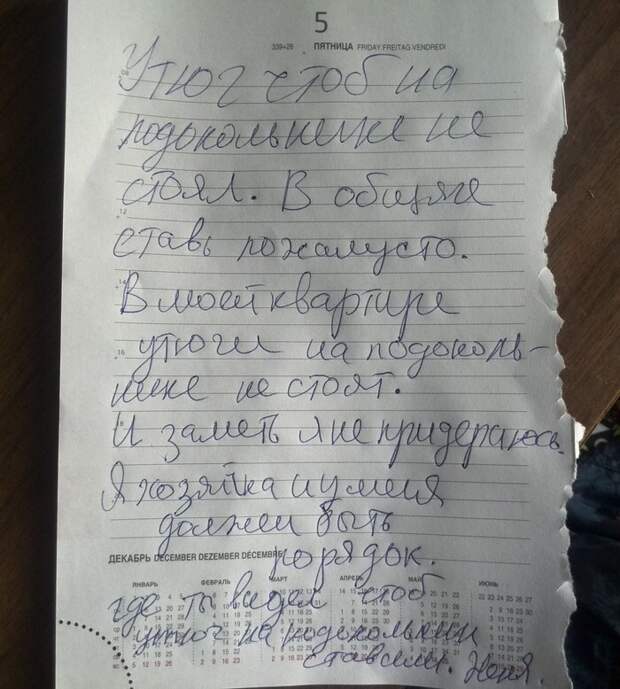 5
339+26 ПЯТНИЦА FRIDAY FREITAG VENDREDI
Утюг чтоб на
подокольнике не
стоял. В общаге
ставь пожалусто.
В моей квартире
утюги на подоколь-
нике не стоят.
И заметь я не придераюсь.
Я хозяйка и у меня
должен быть
порядок.
ДЕКАБРЬ DECEMBER DEZEMBER DÉCEMBRE
ЯНВАРЬ ФЕВРАЛЬ МАРТ АПРЕЛЬ МАЙ ИЮНЬ
где ты видел чтоб
утюг на подокольник
ставили. Женя.